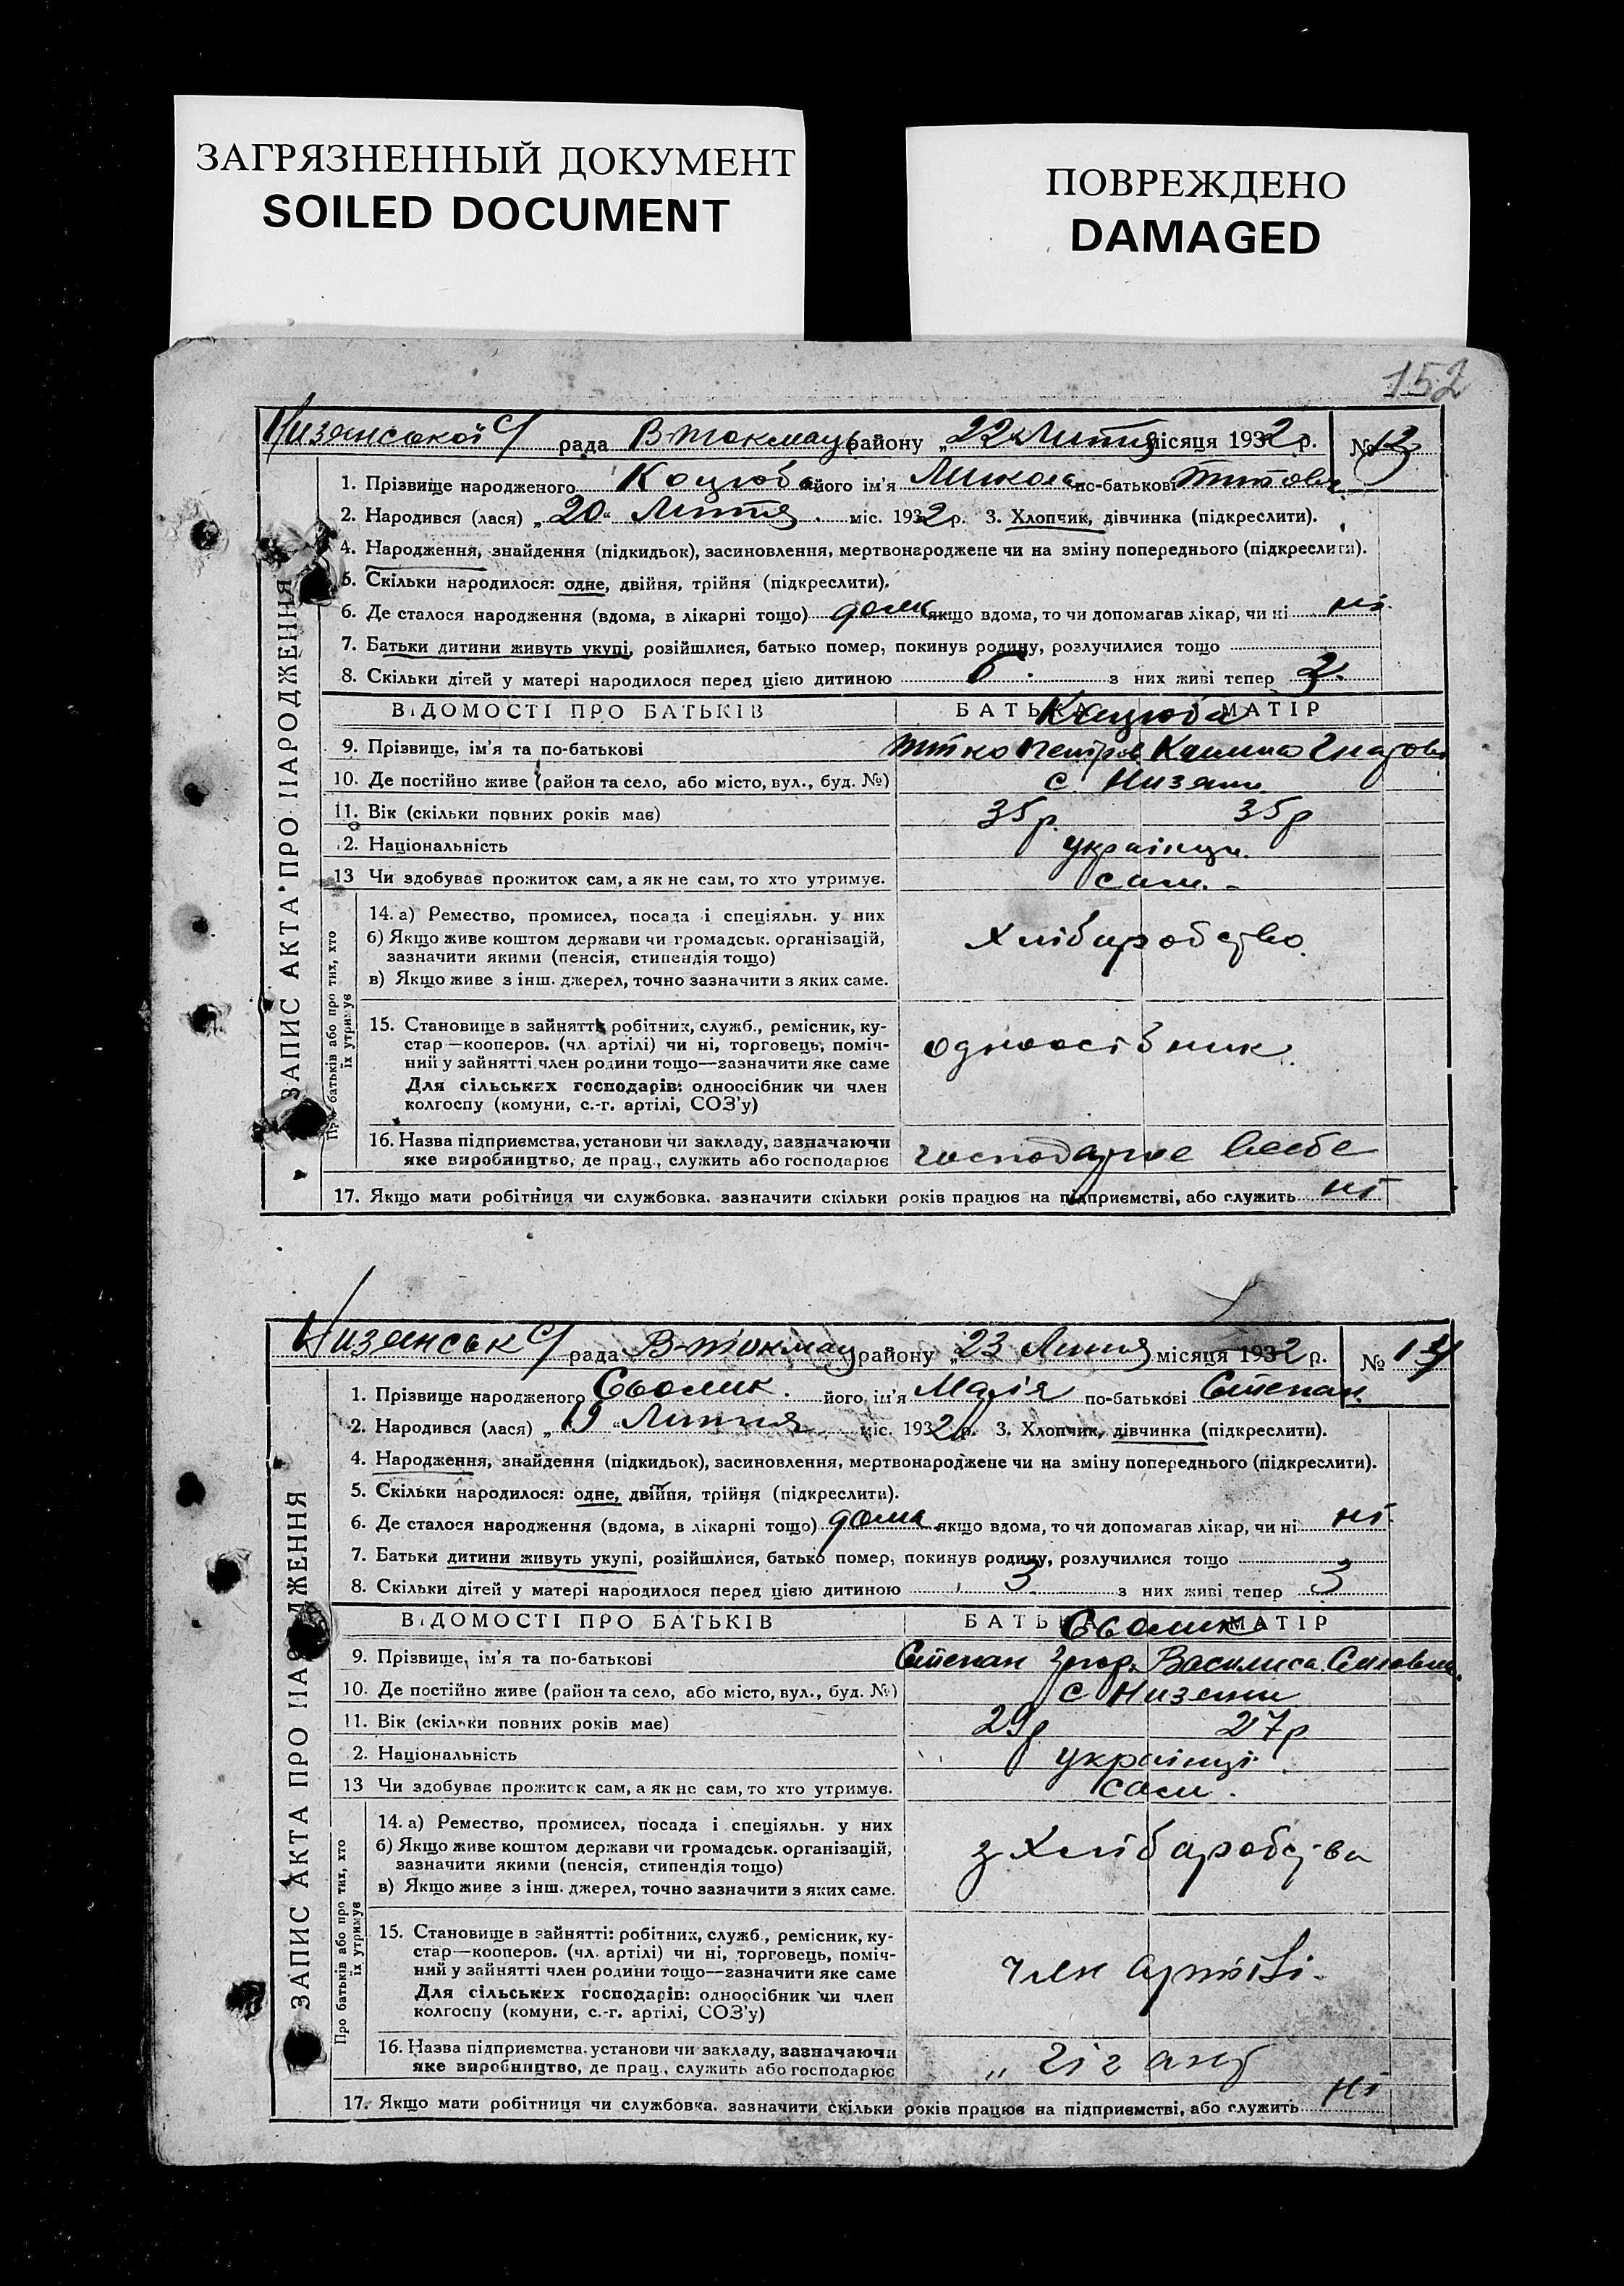 ЗАГРЯЗНЕННЫЙ ДОКУМЕНТ
SOILED DOCUMENT
ПОВРЕЖДЕНО
DAMAGED
152
Низянської с/ рада В-Токмац району „22 Лютня місяця 1932 р. № 13
ЗАПИС АКТА ПРО НАРОДЖЕННЯ
1. Прізвище народженого Коцюба його ім'я Микола по-батькові Титович
2. Народився (лася) „20“ Лютня міс. 1932 р. 3. Хлопчик, дівчинка (підкреслити).
4. Народження, знайдення (підкидьок), засиновлення, мертвонароджене чи на зміну попереднього (підкреслити).
5. Скільки народилося: одне, двійня, трійня (підкреслити).
6. Де сталося народження (вдома, в лікарні тощо) дома якщо вдома, то чи допомагав лікар, чи ні ні
7. Батьки дитини живуть укупі, розійшлися, батько помер, покинув родину, розлучилися тощо
8. Скільки дітей у матері народилося перед цією дитиною 6. з них живі тепер 2.
ВІДОМОСТІ ПРО БАТЬКІВ БАТЬКА МАТІР
Коцюба
9. Прізвище, ім'я та по-батькові Титко Петров
10. Де постійно живе (район та село, або місто, вул., буд. №) с Низяни
11. Вік (скільки повних років має) 35р. 35р
2. Національність українци.
13 Чи здобуває прожиток сам, а як не сам, то хто утримує. сам.
Про батьків або про тих, хто їх утримує
14. а) Ремество, промисел, посада і спеціяльн. у них
б) Якщо живе коштом держави чи громадськ. організацій,
зазначити якими (пенсія, стипендія тощо) хлібаробство.
в) Якщо живе з інш. джерел, точно зазначити з яких саме.
15. Становище в зайнятті робітник, служб., ремісник, ку-
стар—кооперов. (чл. артілі) чи ні, торговець, поміч-
ний у зайнятті член родини тощо—зазначити яке саме одноосібник.
Для сільських господарів: одноосібник чи член
колгоспу (комуни, с.-г. артілі, СОЗ'у)
16. Назва підприємства, установи чи закладу, зазначаючи
яке виробництво, де прац., служить або господарює господарює всебе
17. Якщо мати робітниця чи службовка, зазначити скільки років працює на підприємстві, або служить ні
Низянськ с/ рада В-Токмац району „23 Лютня місяця 1932 р. № 14
ЗАПИС АКТА ПРО НАРОДЖЕННЯ
1. Прізвище народженого Сьомик. його ім'я Марія по-батькові Степан.
2. Народився (лася) „19“ Лютня міс. 1932 р. 3. Хлопчик, дівчинка (підкреслити).
4. Народження, знайдення (підкидьок), засиновлення, мертвонароджене чи на зміну попереднього (підкреслити).
5. Скільки народилося: одне, двійня, трійня (підкреслити).
6. Де сталося народження (вдома, в лікарні тощо) дома якщо вдома, то чи допомагав лікар, чи ні ні
7. Батьки дитини живуть укупі, розійшлися, батько помер, покинув родину, розлучилися тощо
8. Скільки дітей у матері народилося перед цією дитиною 3 з них живі тепер 3
ВІДОМОСТІ ПРО БАТЬКІВ БАТЬКА МАТІР
Сьомик
9. Прізвище, ім'я та по-батькові Степан Василиса
10. Де постійно живе (район та село, або місто, вул., буд. №) с Низяни
11. Вік (скільки повних років має) 29р 27р
2. Національність українці.
13 Чи здобуває прожиток сам, а як не сам, то хто утримує. сам.
Про батьків або про тих, хто їх утримує
14. а) Ремество, промисел, посада і спеціяльн. у них
б) Якщо живе коштом держави чи громадськ. організацій,
зазначити якими (пенсія, стипендія тощо) з хлібаробства
в) Якщо живе з інш. джерел, точно зазначити з яких саме.
15. Становище в зайнятті: робітник, служб., ремісник, ку-
стар—кооперов. (чл. артілі) чи ні, торговець, поміч-
ний у зайнятті член родини тощо—зазначити яке саме член артілі.
Для сільських господарів: одноосібник чи член
колгоспу (комуни, с.-г. артілі, СОЗ'у)
16. Назва підприємства, установи чи закладу, зазначаючи
яке виробництво, де прац., служить або господарює „Гігант
17. Якщо мати робітниця чи службовка, зазначити скільки років працює на підприємстві, або служить ні